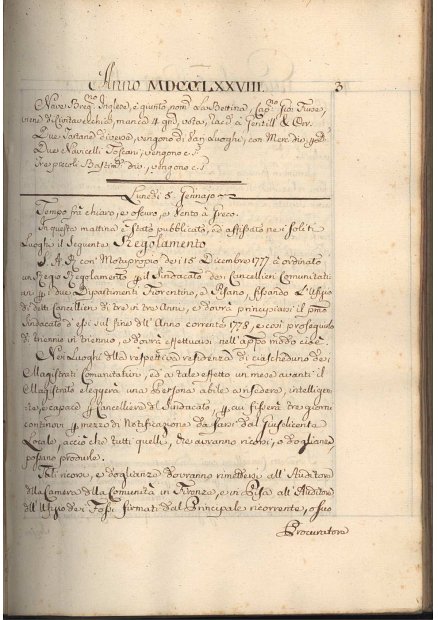 Anno MDCCLXXVIII. 3
Nave Inglese, è giunto, nom.ª La Bettina, Cap.no Gio:
viene di Civitavecchia, manca 4 gni, vota, racc.ª a Gentil & Orr.
Due Tartane diverse, vengono di d'an Luoghi, con Merc. die
Due Navicelli Toscani, vengono c.s.
Tre piccoli Bastim.ti die, vengono c.s.
Lunedì 5 Gennajo
Tempo frà chiaro, e oscuro, e Vento à Greco.
In questa mattina è stato pubblicato, ed affissato pe i soliti
Luoghi il seguente Regolamento
S. A. R. con Motuproprio dei 15 Dicembre 1777 à ordinato
un Regio Regolamento il Sindacato dei Cancellieri Comunitati-
vi i due Dipartimenti Fiorentino, e Pisano, fissando L'Ufizio
di detti Cancellieri di tre in tre Anni, e dovrà principiarsi il pmo
Sindacato d'essi sul fine dell'Anno corrente 1778, e così proseguirlo
di triennio in triennio, e dovrà effettuarsi nell'appso modo cioè.
Nei Luoghi della respettiva residenza di ciascheduno dei
Magistrati Comunitativi, ed a tale effetto un mese avanti il
Magistrato eleggerà una Persona abile a risedere, intelligen-
te, e capace Cancelliere del Sindacato, cui fisserà tre giorni
continovi mezzo di Notificazione da farsi dal Giusdicente
Locale, acciò che tutti quelli, che avranno ricorsi, o doglianze
possano produrle.
Tali ricorsi, e doglianze dovranno rimettersi all'Auditore
della Camera della Comunità in Firenze, e in Pisa all'Auditore
dell'Ufizio dei Fossi firmati dal Principale ricorrente, o suo
Procuratore